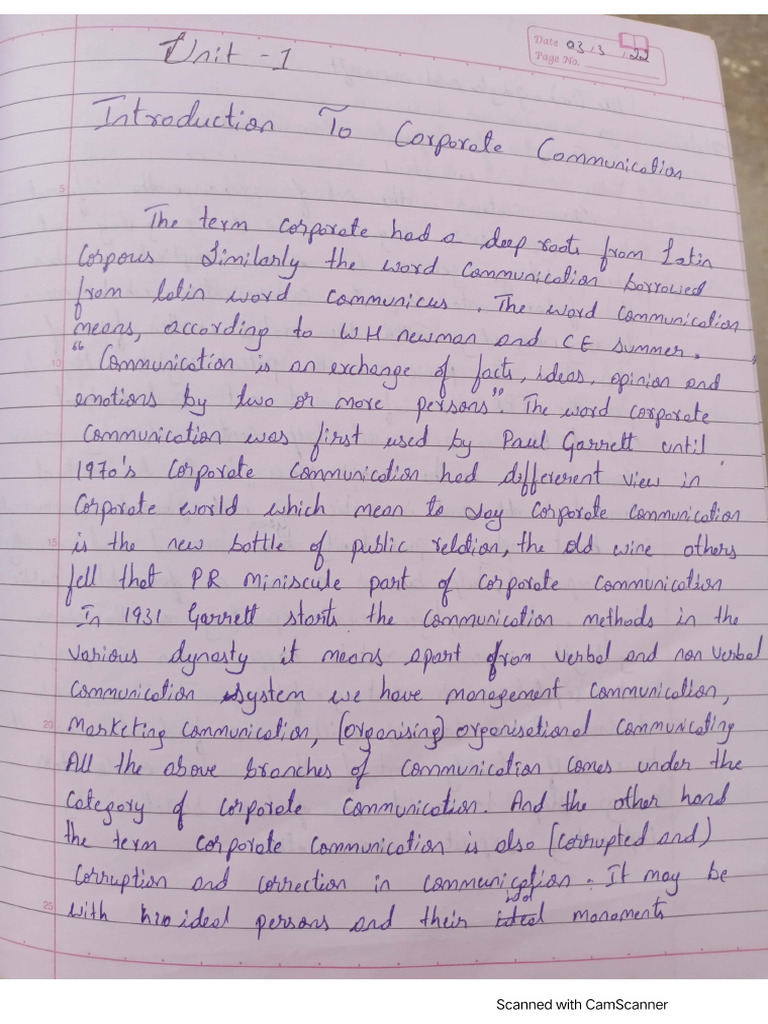 Unit - 1
Date 03/3/22
Page No.
Introduction To Corporate Communication
The term corporate had a deep roots from Latin
Corpous Similarly the word communication borrowed
from latin word communicus. The word communication
means, according to WH newman and CE summer.
"Communication is an exchange of facts, ideas, opinion and
emotions by two or more persons". The word corporate
communication was first used by Paul Garrett until
1970's corporate communication had differerent view in
Corporate world which mean to say corporate communication
is the new bottle of public relation, the old wine others
fell that PR miniscule part of corporate communication
In 1931 Garrett starts the communication methods in the
various dynasty it means apart from verbal and non verbal
communication system we have management communication,
marketing communication, (organising) organisational communicating
All the above branches of communication comes under the
category of corporate communication. And the other hand
the term corporate communication is also (corrupted and)
corruption and correction in communication. It may be
with ideal persons and their idol monoments
5
10
15
20
25
Scanned with CamScanner